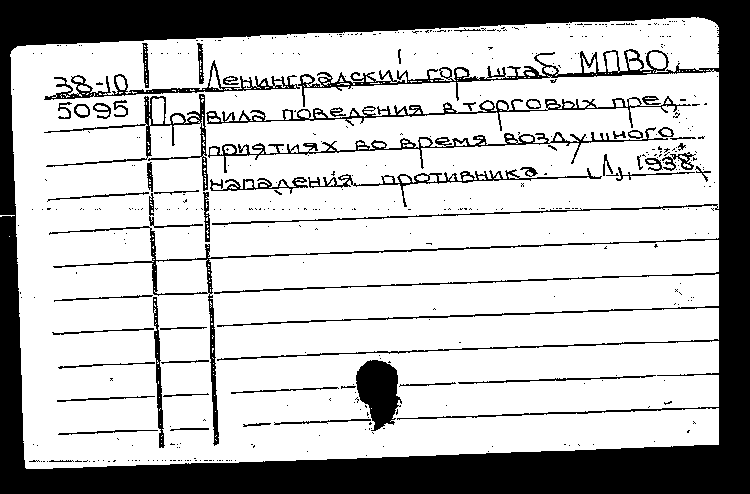 38-10 Ленинградский гор. штаб МПВО.
5095 Правила поведения в торговых пред-
приятиях во время воздушного
нападения противника. Л., 1938.